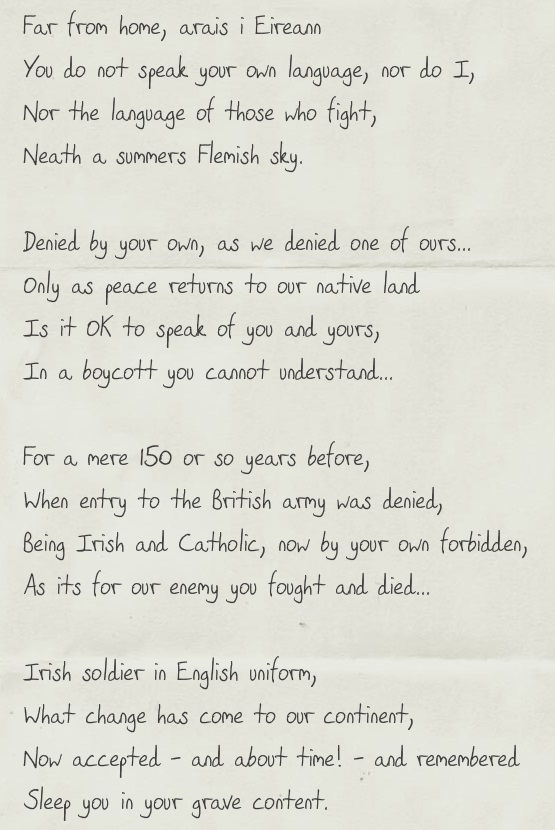 Far from home, arais i Eireann
You do not speak your own language, nor do I,
Nor the language of those who fight,
Neath a summers Flemish sky.

Denied by your own, as we denied one of ours...
Only as peace returns to our native land
Is it OK to speak of you and yours,
In a boycott you cannot understand...

For a mere 150 or so years before,
When entry to the British army was denied,
Being Irish and Catholic, now by your own forbidden,
As its for our enemy you fought and died...

Irish soldier in English uniform,
What change has come to our continent,
Now accepted - and about time! - and remembered
Sleep you in your grave content.